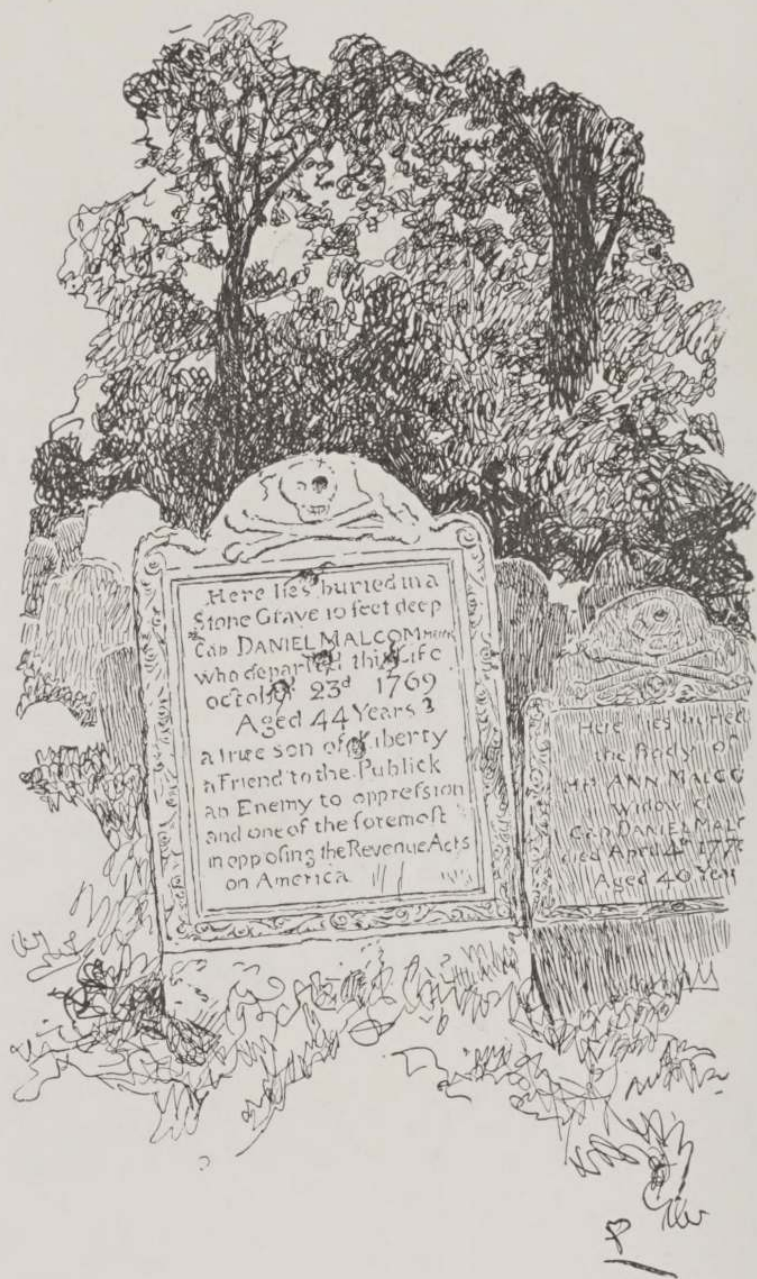 Here lies buried in a
Stone Grave 10 feet deep
Cap DANIEL MALCOM Mercht
who departed this Life
october 23d 1769
Aged 44 Years
a true son of Liberty
a Friend to the Publick
an Enemy to oppression
and one of the foremost
in opposing the Revenue Acts
on America
Here lies buried
the Body of
Mrs ANN MALCO
Widow of
Cap DANIEL MALC
died April 4th 177
Aged 40 Year